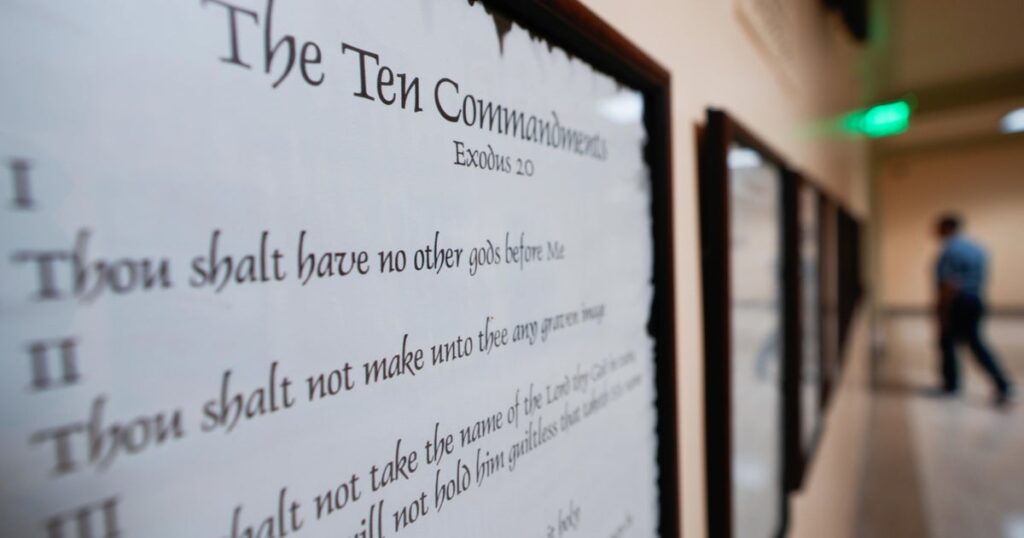 The Ten Commandments
Exodus 20
I
Thou shalt have no other gods before Me
II
Thou shalt not make unto thee any graven image
III
shalt not take the name of the Lord thy God in
will not hold him guiltless that taketh
holy